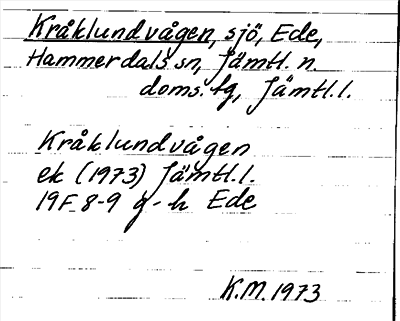 Kråklundvågen, sjö, Ede,
Hammerdals sn, Jämtl. n.
doms. tg, Jämtl. l.
Kråklundvågen
ek (1973) Jämtl. l.
19F 8-9 g-h Ede
K.M. 1973